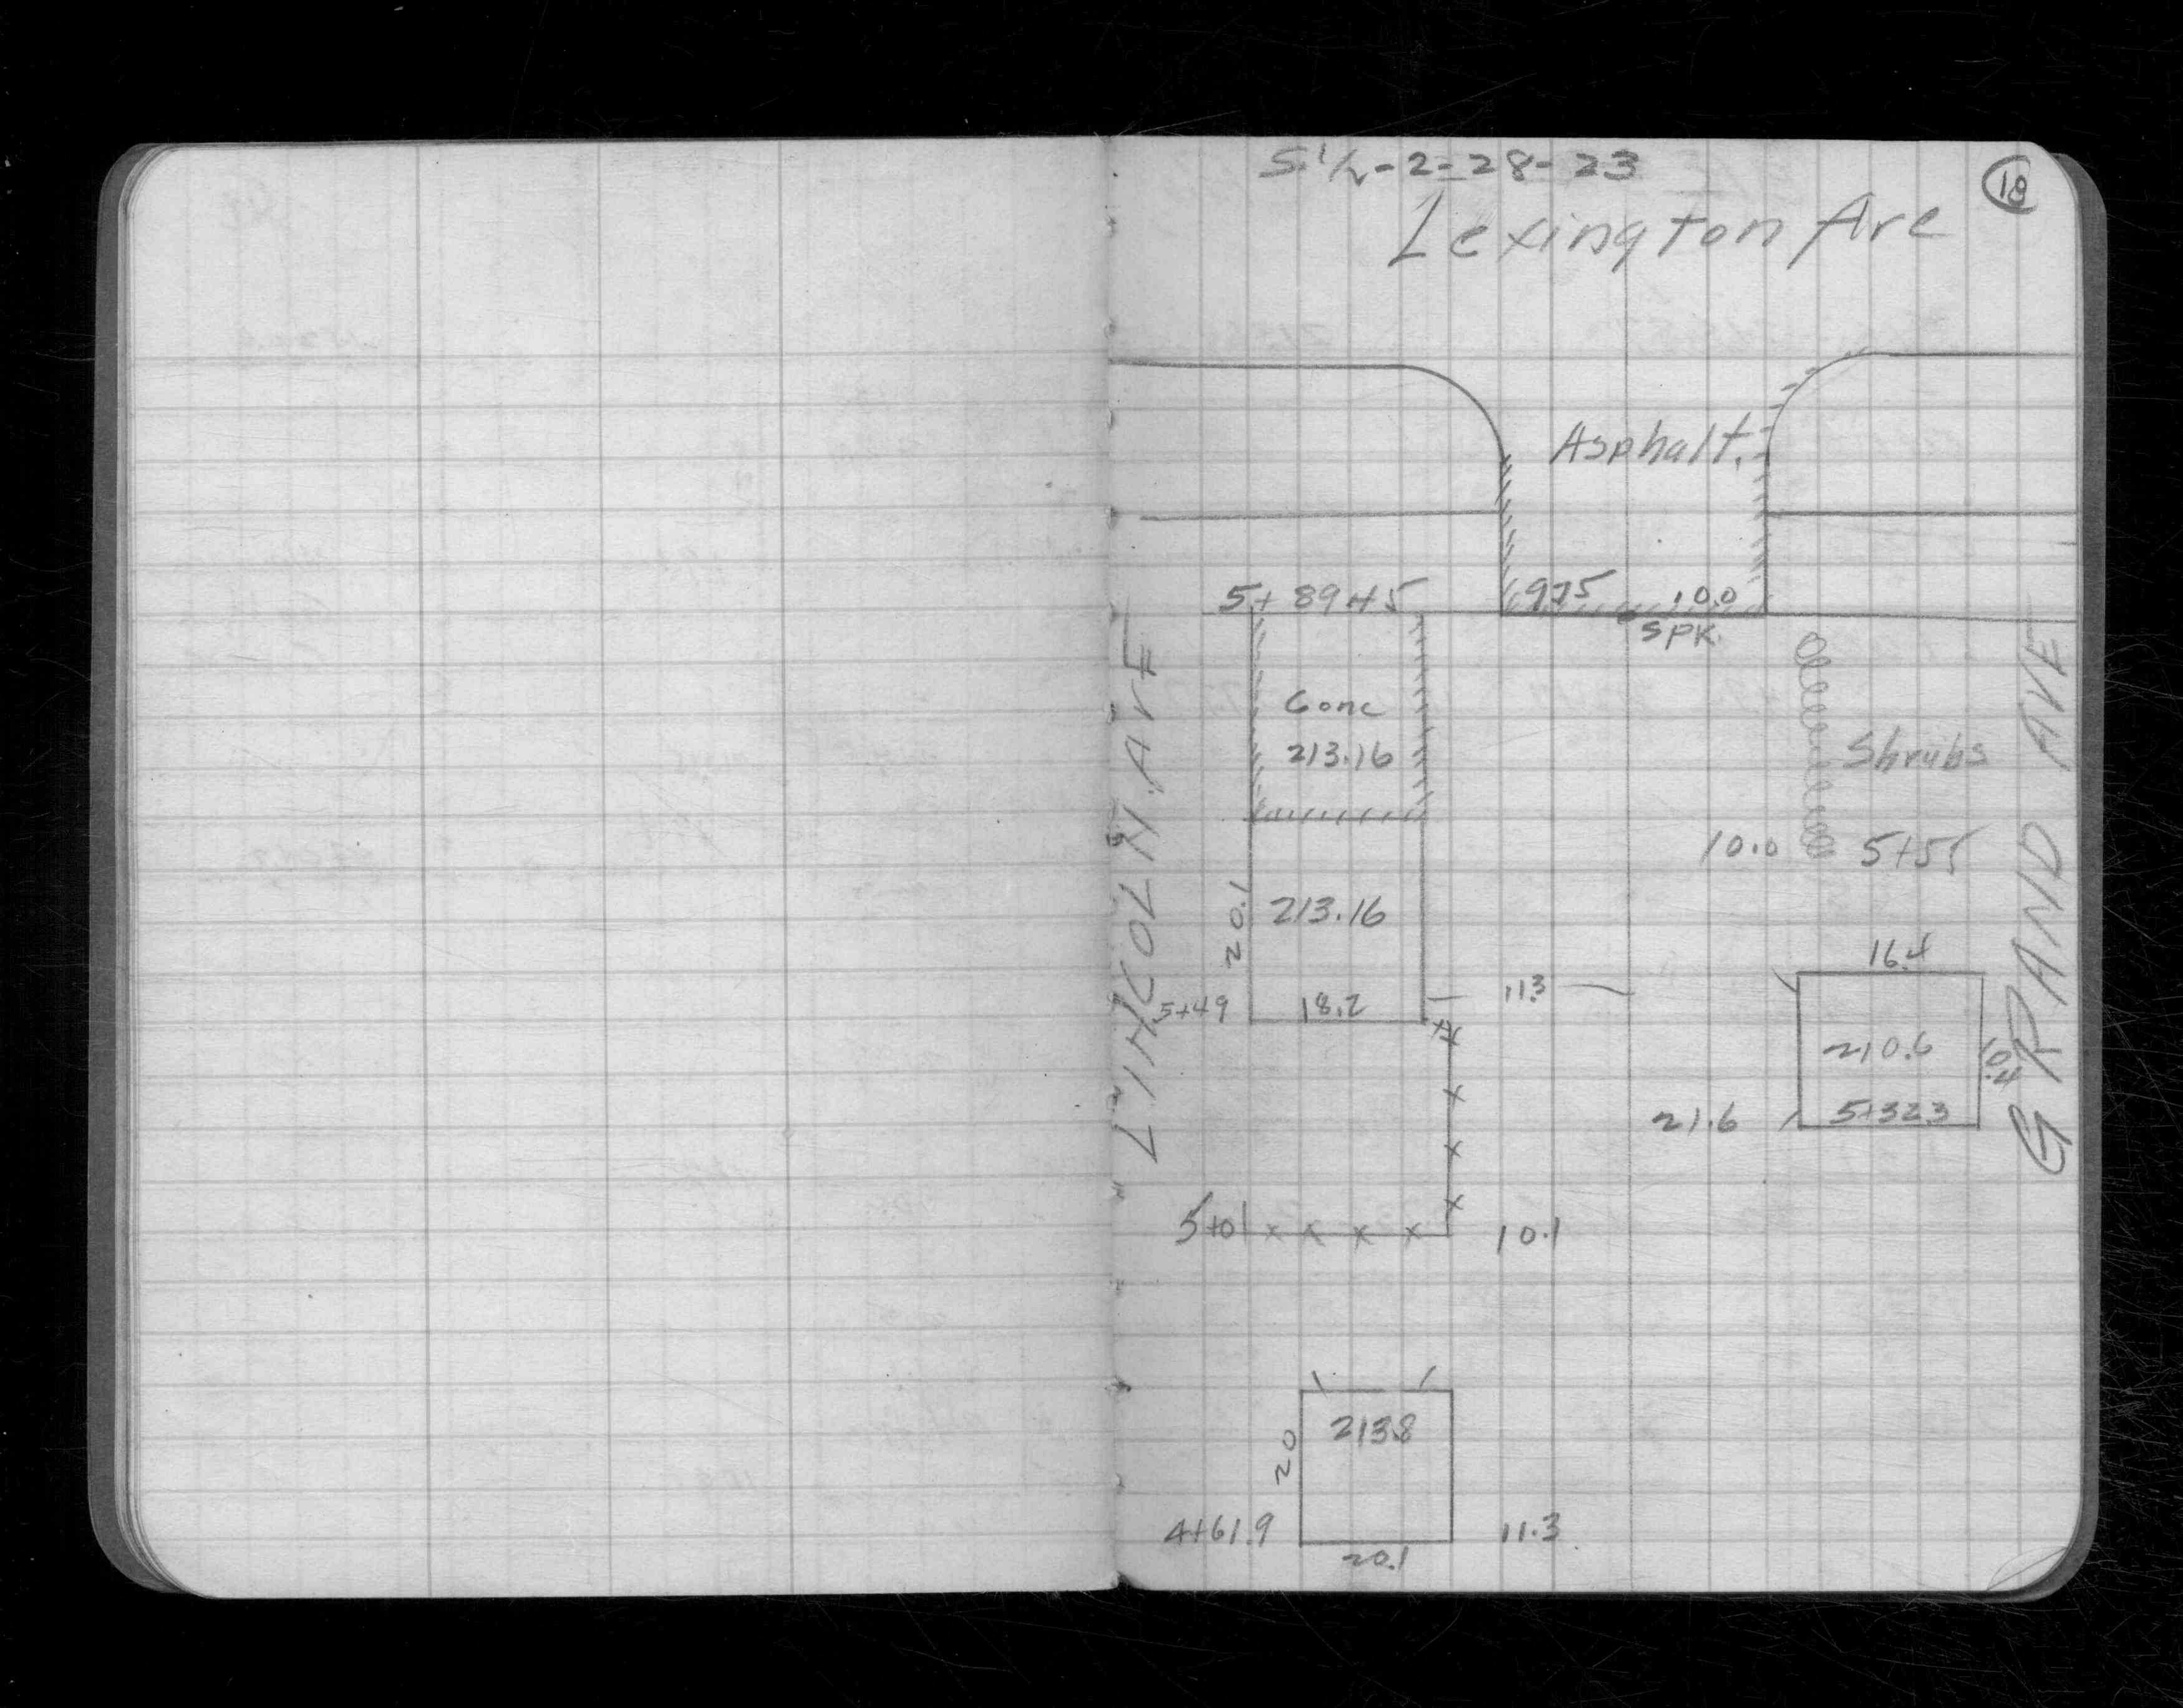 S 1/2 - 2 - 28 - 23
18
Lexington Ave
Asphalt.
5+89.45
9.75
10.0
SPK.
LINCOLN AVE
Conc
213.16
Shrubs
GRAND AVE
10.0
5+55
20.1
213.16
16.4
5+49
18.2
11.3
210.6
10.4
21.6
5+32.3
5+01
10.1
213.8
20
4+61.9
11.3
20.1